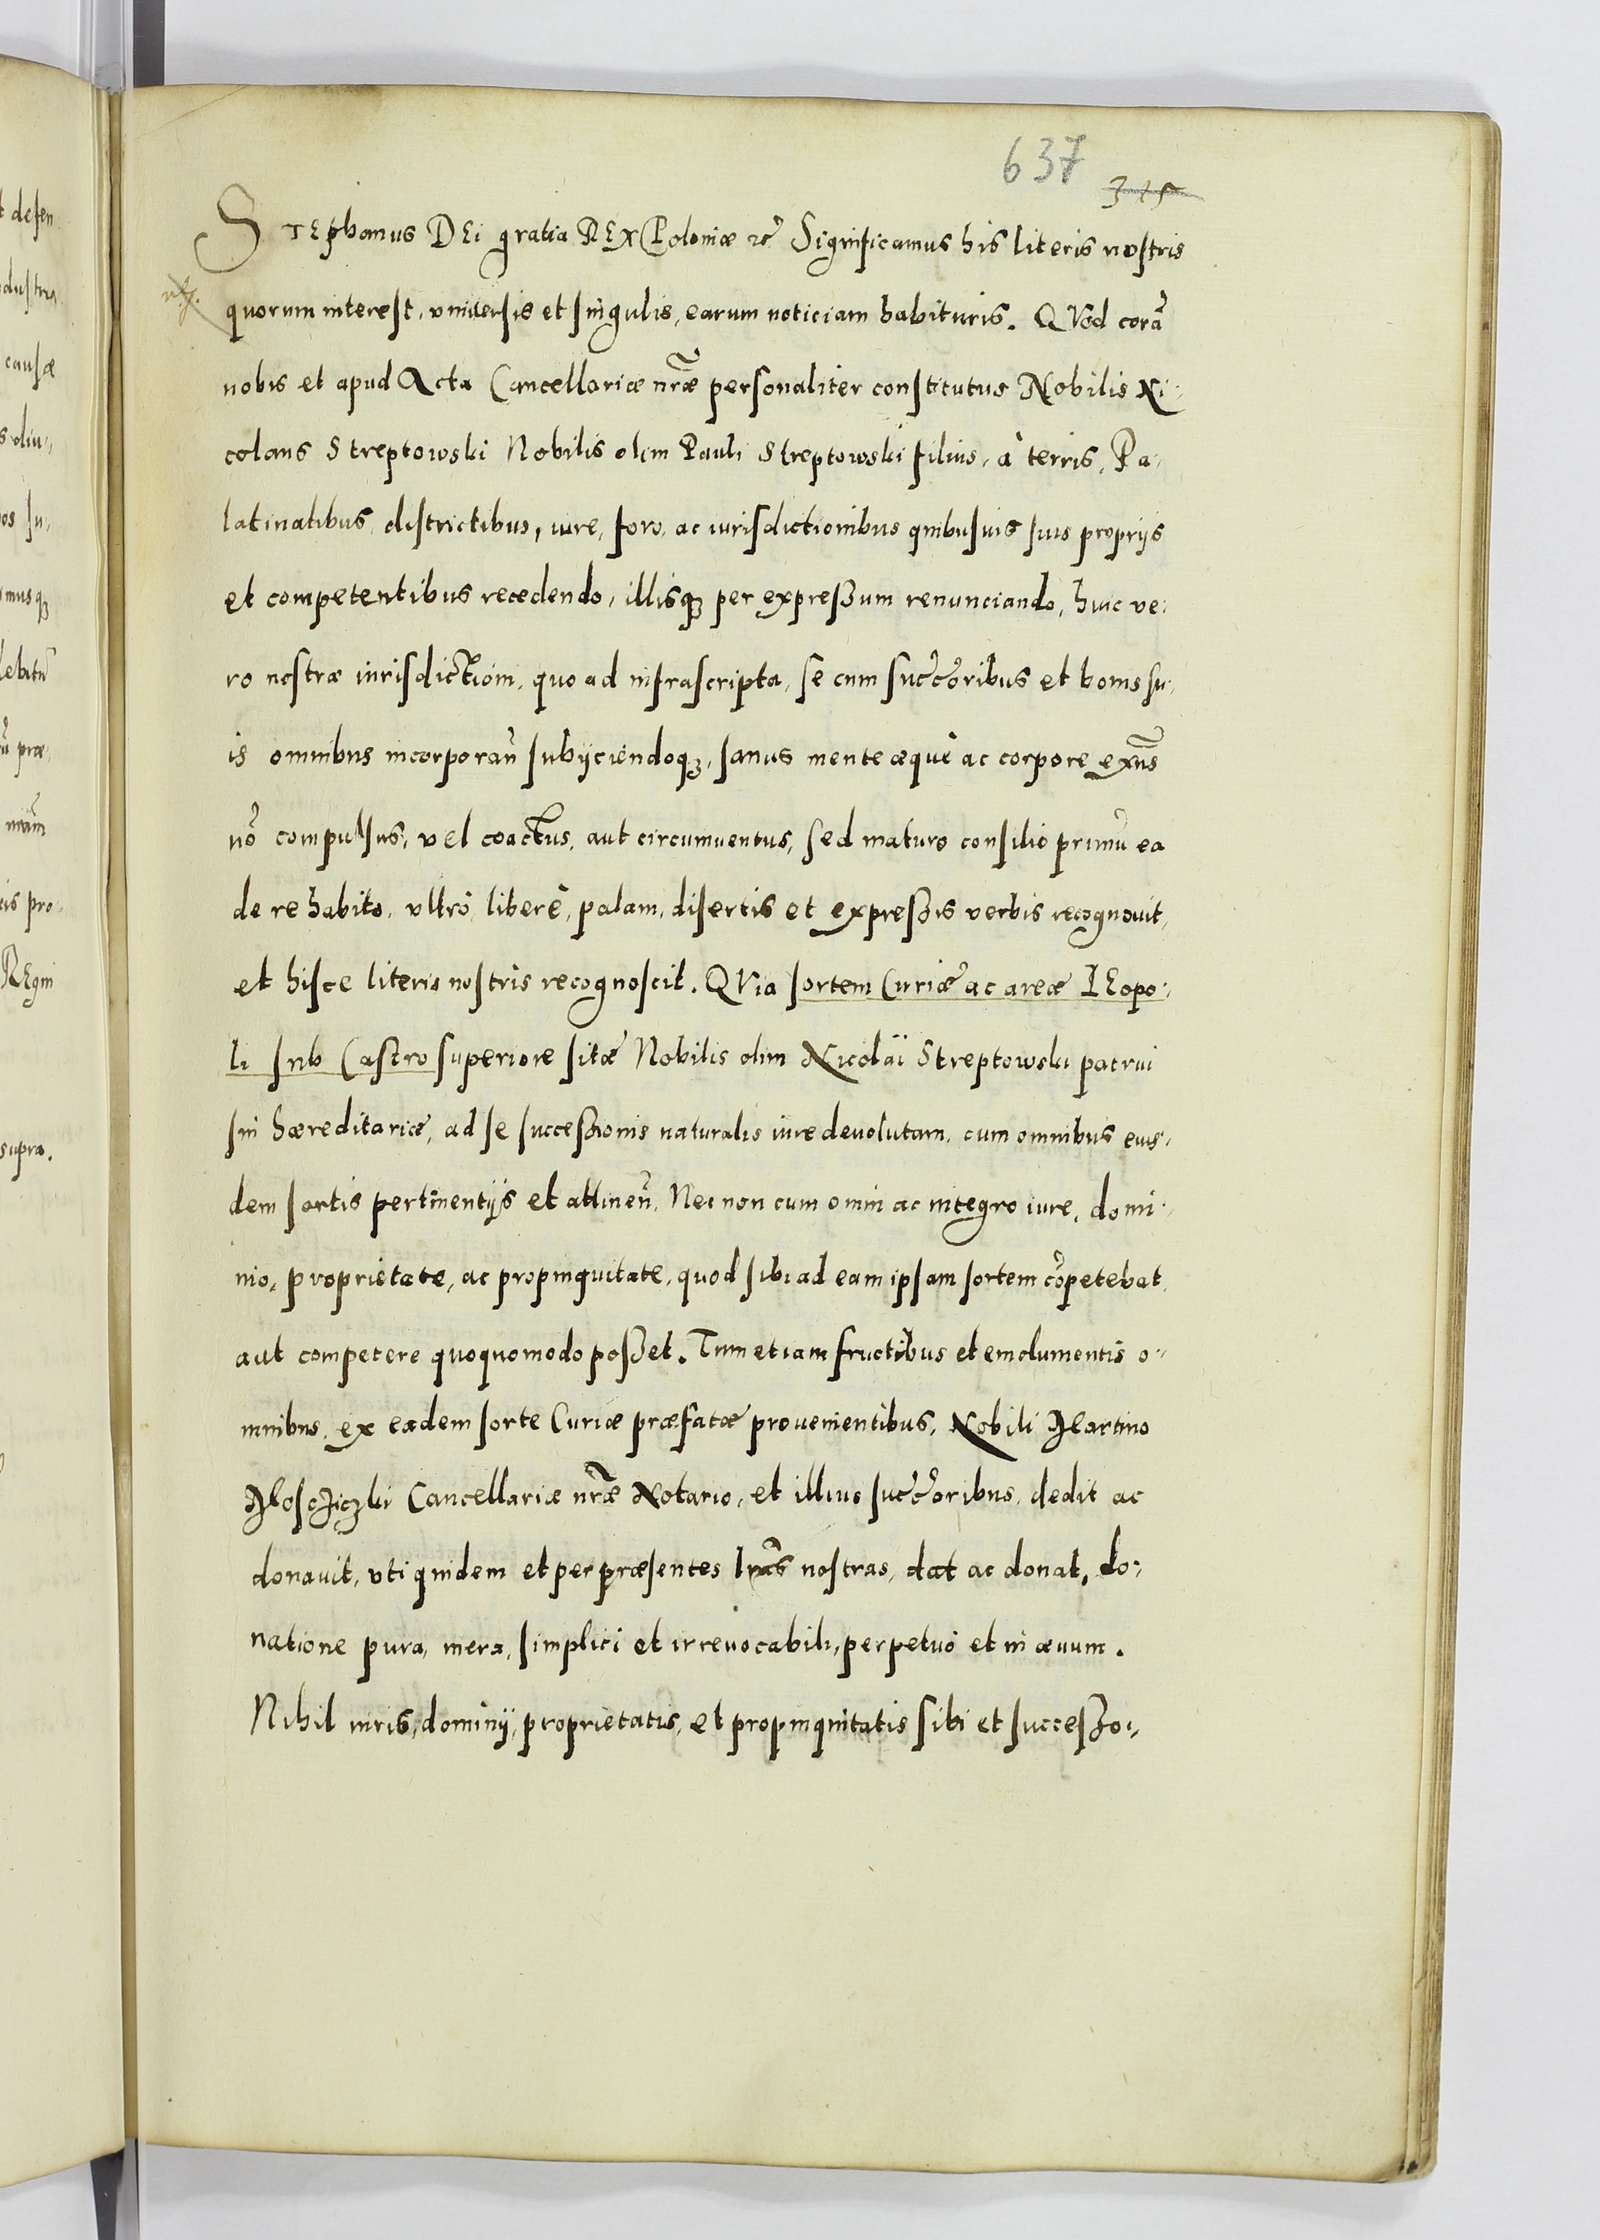 637
315
STEphanus DEi gratia REX Poloniæ ꝛc̃ Significamus his literis nostris
quorum interest, vniuersis et singulis, earum noticiam habituris. QVod corã
nobis et apud Acta Cancellariæ nr̃æ personaliter constitutus Nobilis Ni-
colaus Streptowski Nobilis olim Pauli Streptowski filius, à terris, Pa-
latinatibus, districtibus, iure, foro, ac iurisdictionibus quibusuis suis proprijs
et competentibus recedendo, illisqꝫ per expreßum renunciando, huic ve-
ro nostræ iurisdictioni, quo ad infrascripta, se cum succ̃oribus et bonis su-
is omnibus incorporañ subijciendoqꝫ, sanus mente æquè ac corpore exñs
nõ compulsus, vel coactus, aut circumuentus, sed maturo consilio primũ ea
de re habito, vltrò, liberè, palam, disertis et expreßis verbis recognouit,
et hisce literis nostris recognoscit. QVia sortem Curiæ ac areæ LEopo-
li sub Castro superiore sitæ Nobilis olim Nicolai Streptowski patrui
sui hæreditariæ, ad se succeßionis naturalis iure deuolutam, cum omnibus eius-
dem sortis pertinentijs et attineñ. Nec non cum omni ac integro iure, domi-
nio, proprietate, ac propinquitate, quod sibi ad eam ipsam sortem cõpetebat,
aut competere quoquomodo poßet. Tum etiam fructibus et emolumentis o-
mnibus, ex eadem sorte Curiæ præfatæ prouenientibus, Nobili Martino
Mosciczki Cancellariæ nr̃æ Notario, et illius succ̃oribus, dedit ac
donauit, vti quidem et per præsentes lrãs nostras, dat ac donat, do-
natione pura, mera, simplici et irreuocabili, perpetuò et in æuum.
Nihil iuris, dominij, proprietatis, et propinquitatis sibi et succeßo-
t defen
dustria
causæ
musqꝫ
debitũ
præ-
pro-
REgni
supra.